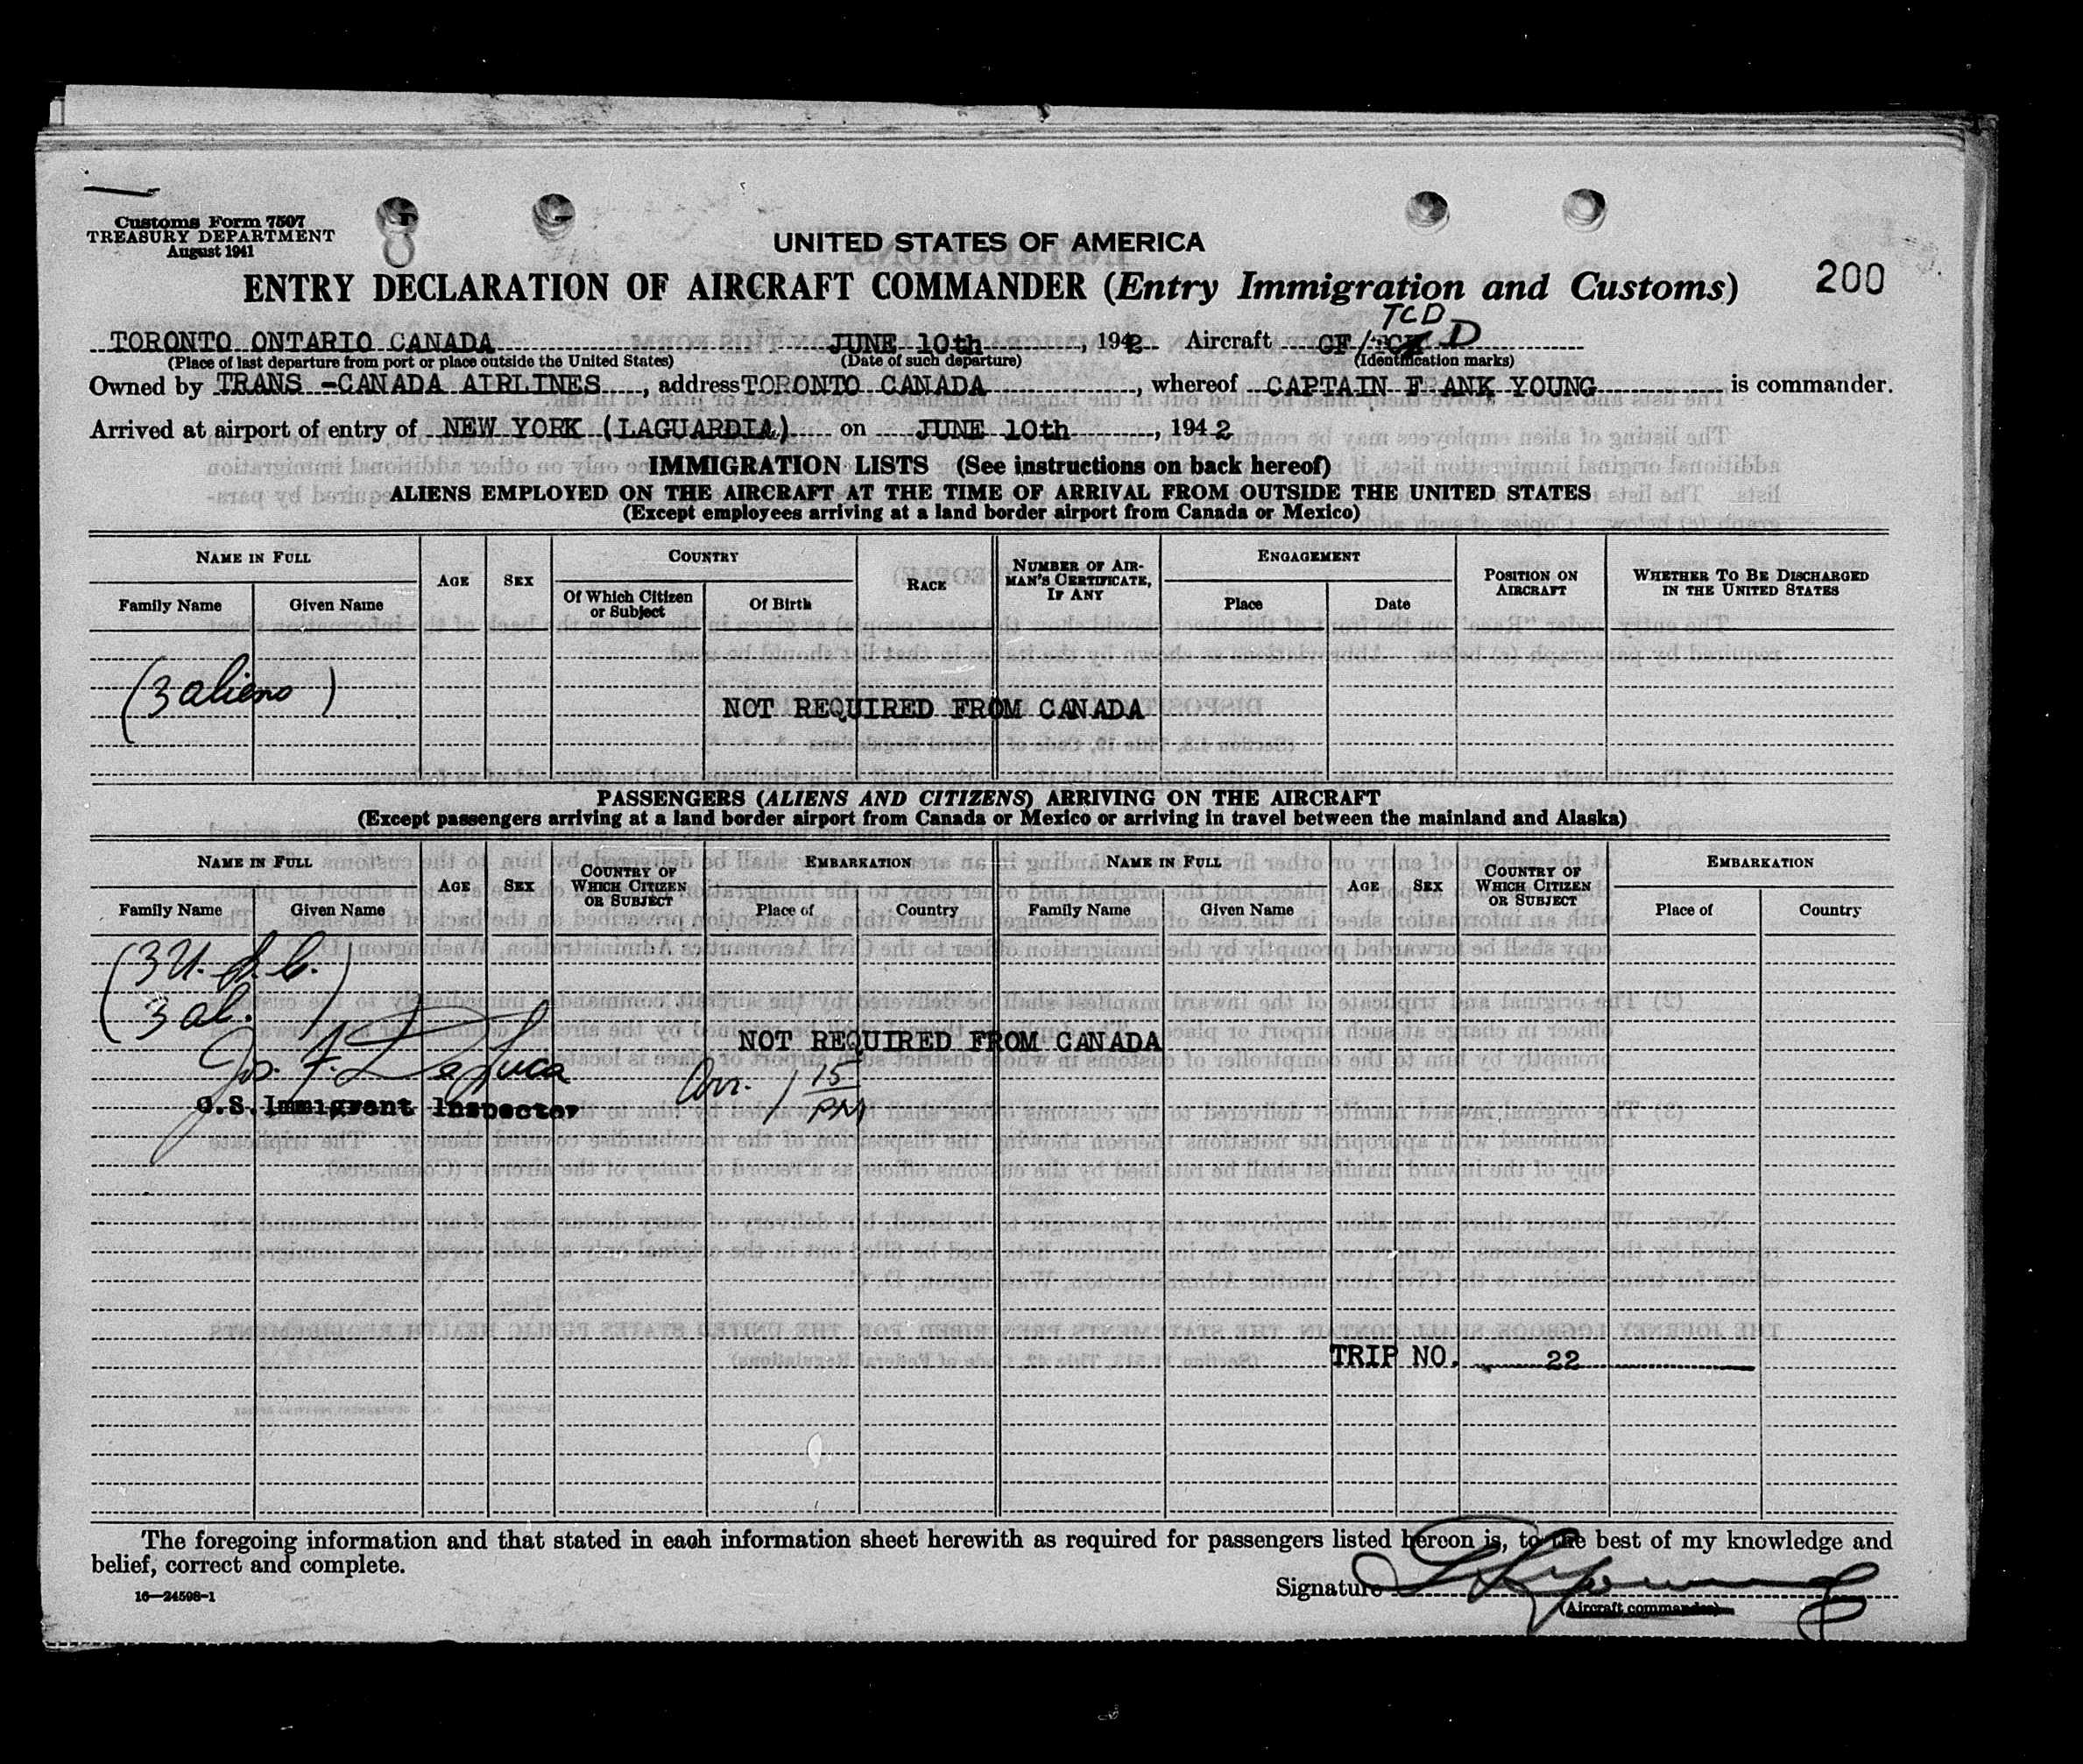 Customs Form 7507
TREASURY DEPARTMENT
August 1941
UNITED STATES OF AMERICA
ENTRY DECLARATION OF AIRCRAFT COMMANDER (Entry Immigration and Customs)
200
TCD
TORONTO ONTARIO CANADA JUNE 10th, 1942 Aircraft CF/ D
(Place of last departure from port or place outside the United States) (Date of such departure) (Identification marks)
Owned by TRANS -CANADA AIRLINES, address TORONTO CANADA, whereof CAPTAIN FRANK YOUNG is commander.
Arrived at airport of entry of NEW YORK (LAGUARDIA) on JUNE 10th, 1942
IMMIGRATION LISTS (See instructions on back hereof)
ALIENS EMPLOYED ON THE AIRCRAFT AT THE TIME OF ARRIVAL FROM OUTSIDE THE UNITED STATES
(Except employees arriving at a land border airport from Canada or Mexico)
NAME IN FULL AGE SEX COUNTRY RACE NUMBER OF AIRMAN'S CERTIFICATE, IF ANY ENGAGEMENT POSITION ON AIRCRAFT WHETHER TO BE DISCHARGED IN THE UNITED STATES
Family Name Given Name Of Which Citizen or Subject Of Birth Place Date
(3 aliens)
NOT REQUIRED FROM CANADA
PASSENGERS (ALIENS AND CITIZENS) ARRIVING ON THE AIRCRAFT
(Except passengers arriving at a land border airport from Canada or Mexico or arriving in travel between the mainland and Alaska)
NAME IN FULL AGE SEX COUNTRY OF WHICH CITIZEN OR SUBJECT EMBARKATION NAME IN FULL AGE SEX COUNTRY OF WHICH CITIZEN OR SUBJECT EMBARKATION
Family Name Given Name Place of Country Family Name Given Name Place of Country
(3 U.S.C.)
(3 al.)
NOT REQUIRED FROM CANADA
Jos. F. DeLuca
Arr. 1 15 PM
U.S. Immigrant Inspector
TRIP NO. 22
The foregoing information and that stated in each information sheet herewith as required for passengers listed hereon is, to the best of my knowledge and
belief, correct and complete.
Signature
(Aircraft commander)
16—24598-1